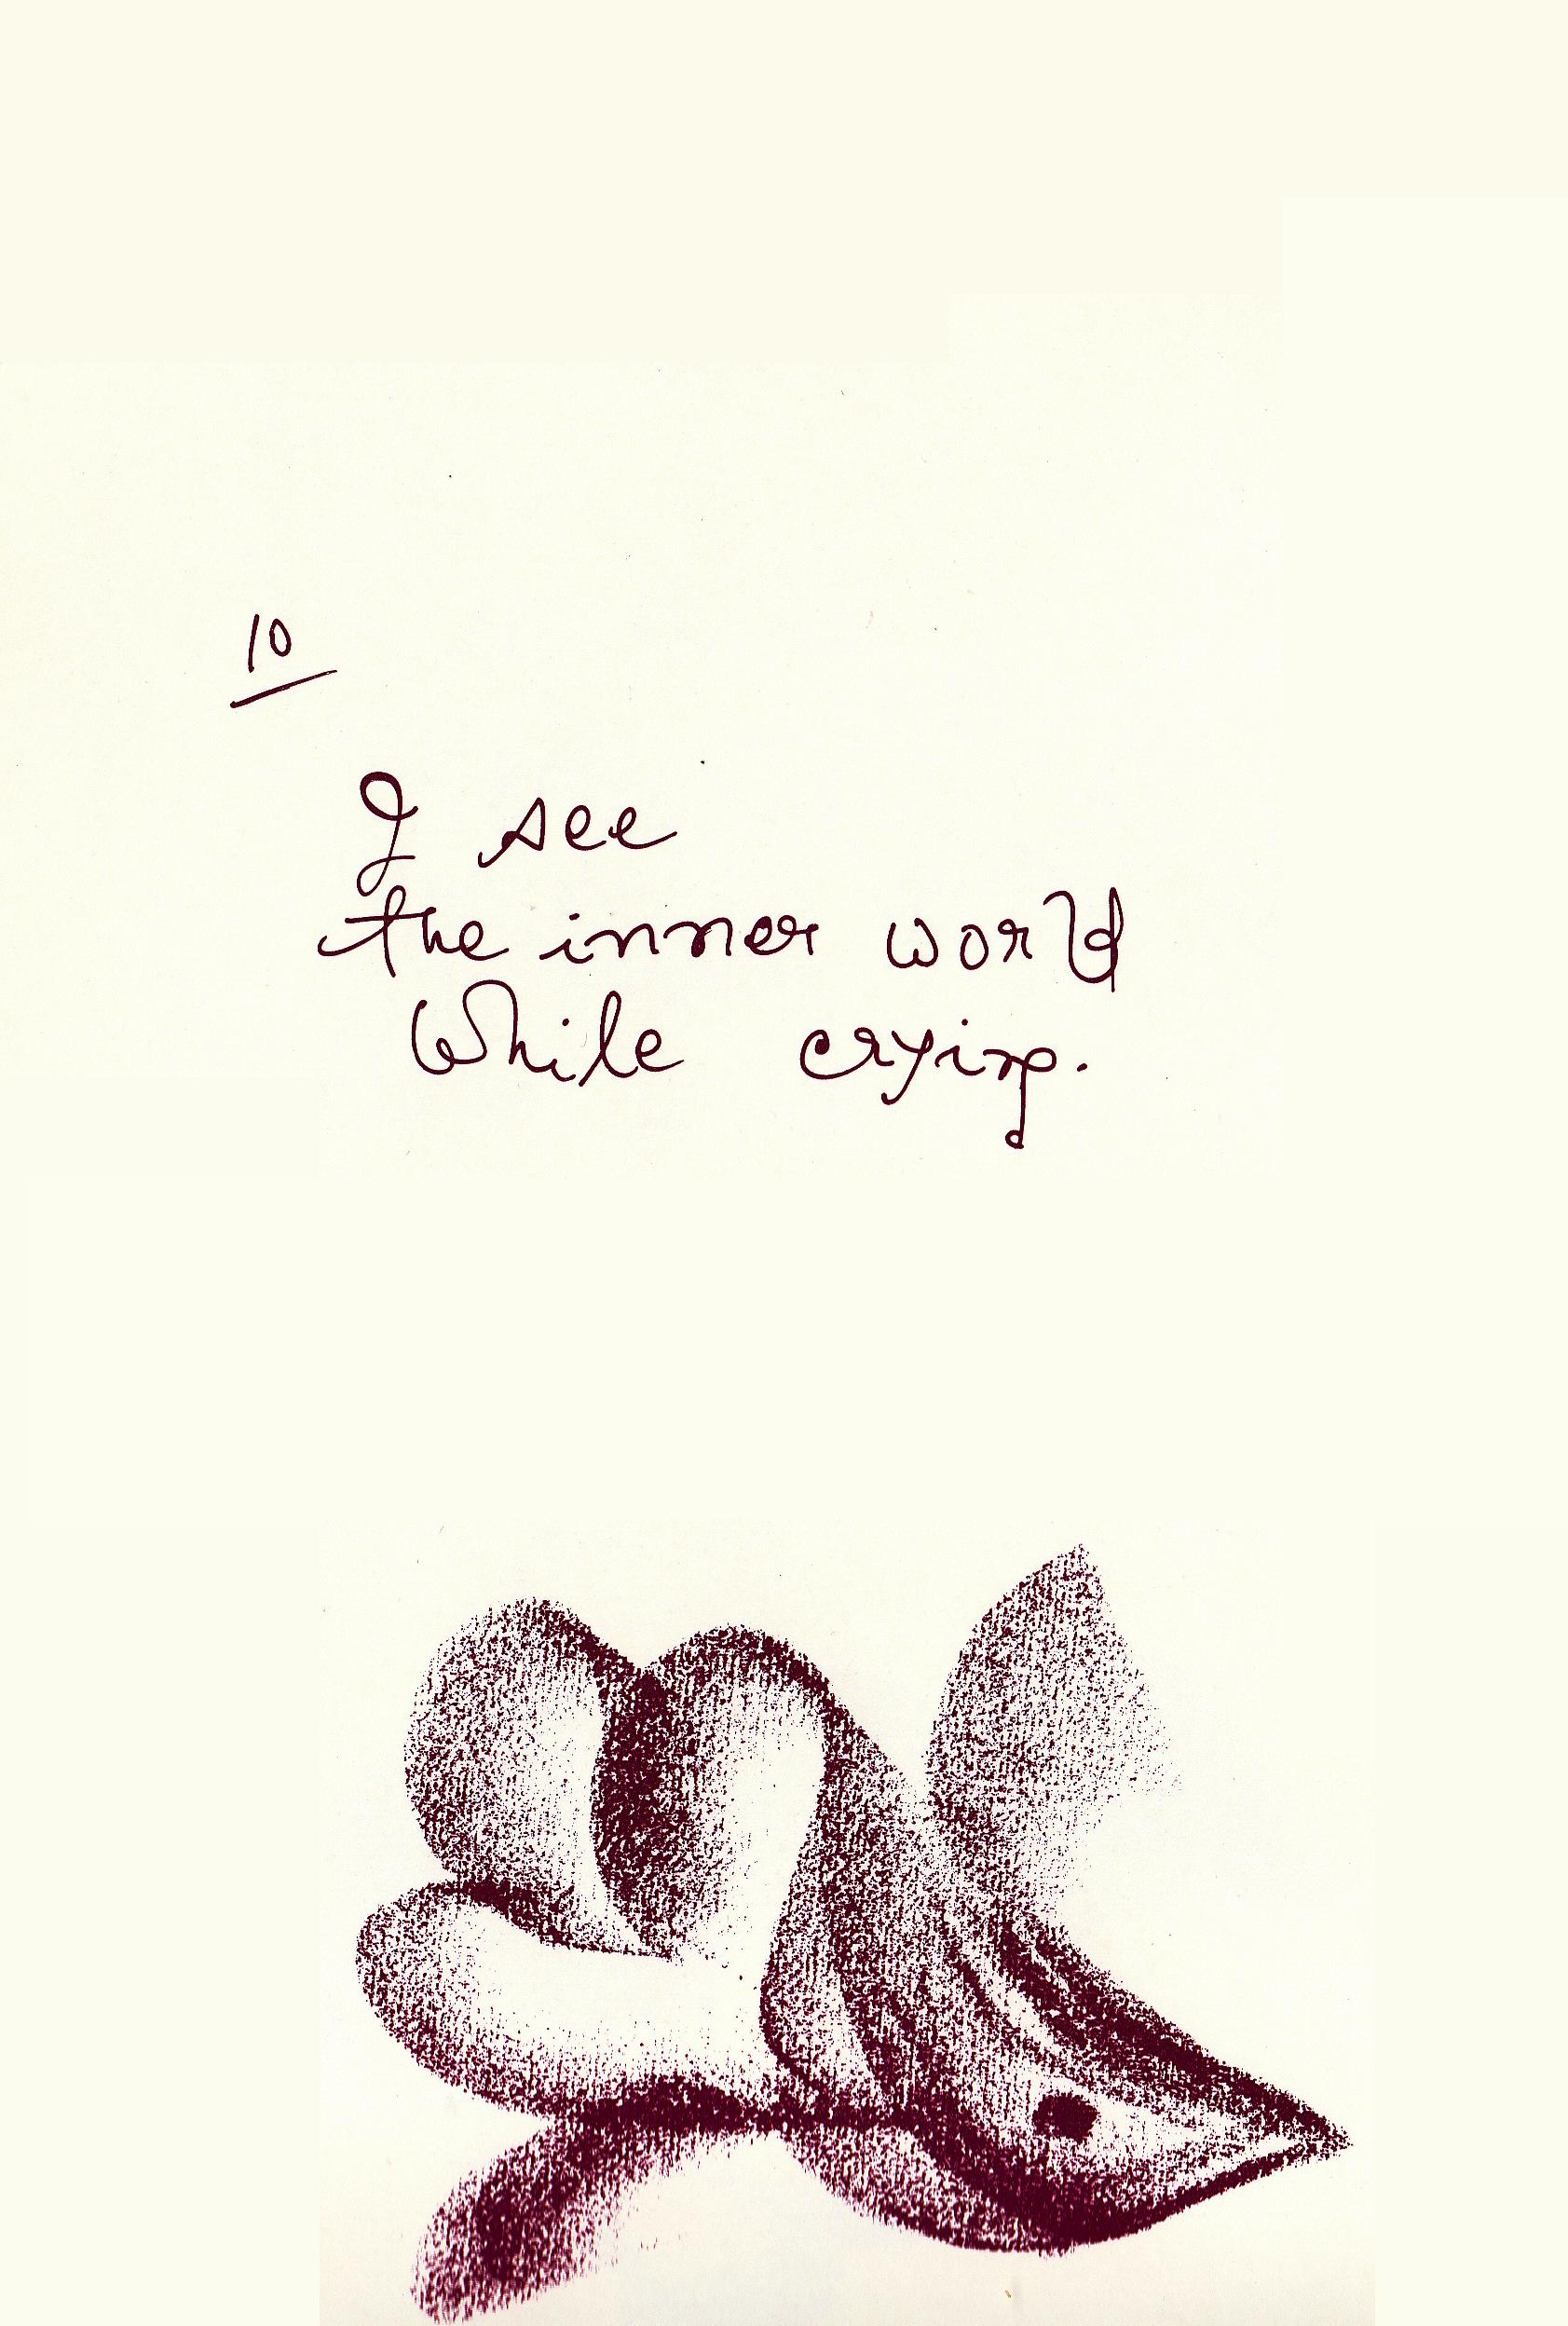 10
I see
the inner world
While crying.